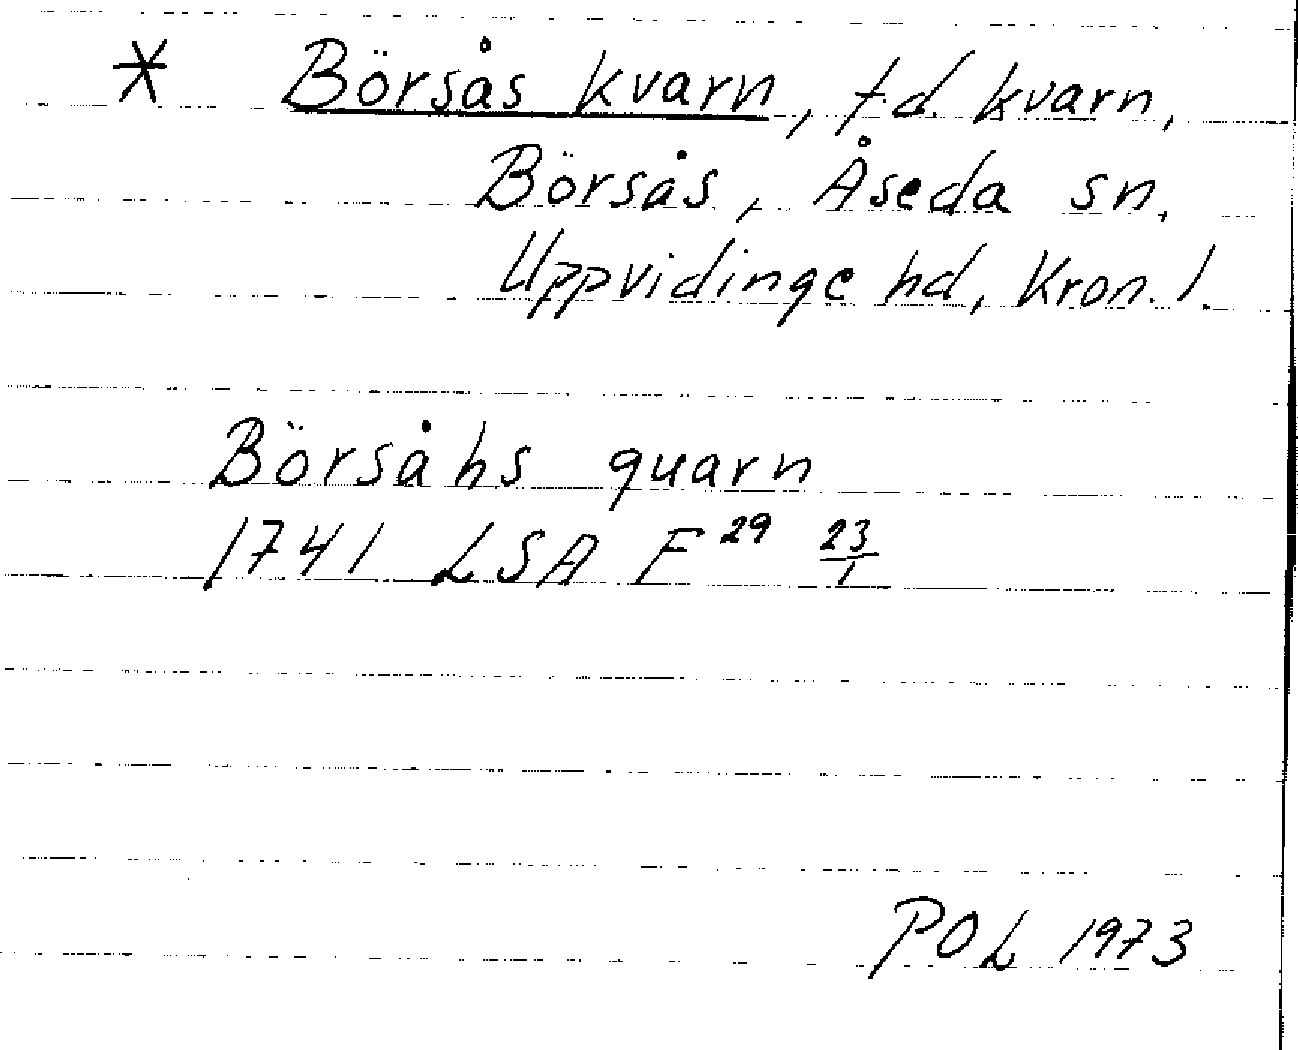 * Börsås kvarn, f.d. kvarn,
Börsås, Åseda sn.
Uppvidinge hd, Kron. l.
Börsåhs quarn
1741 LSA F 29 23/1
POL 1973